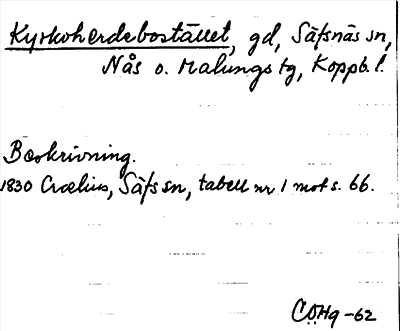 Kyrkoherdebostället, gd, Säfsnäs sn,
Nås o. Malungs tg, Koppb. l.
Beskrivning.
1830 Crælius, Säfs sn, tabell nr 1 mot s. 66.
CÖHg -62